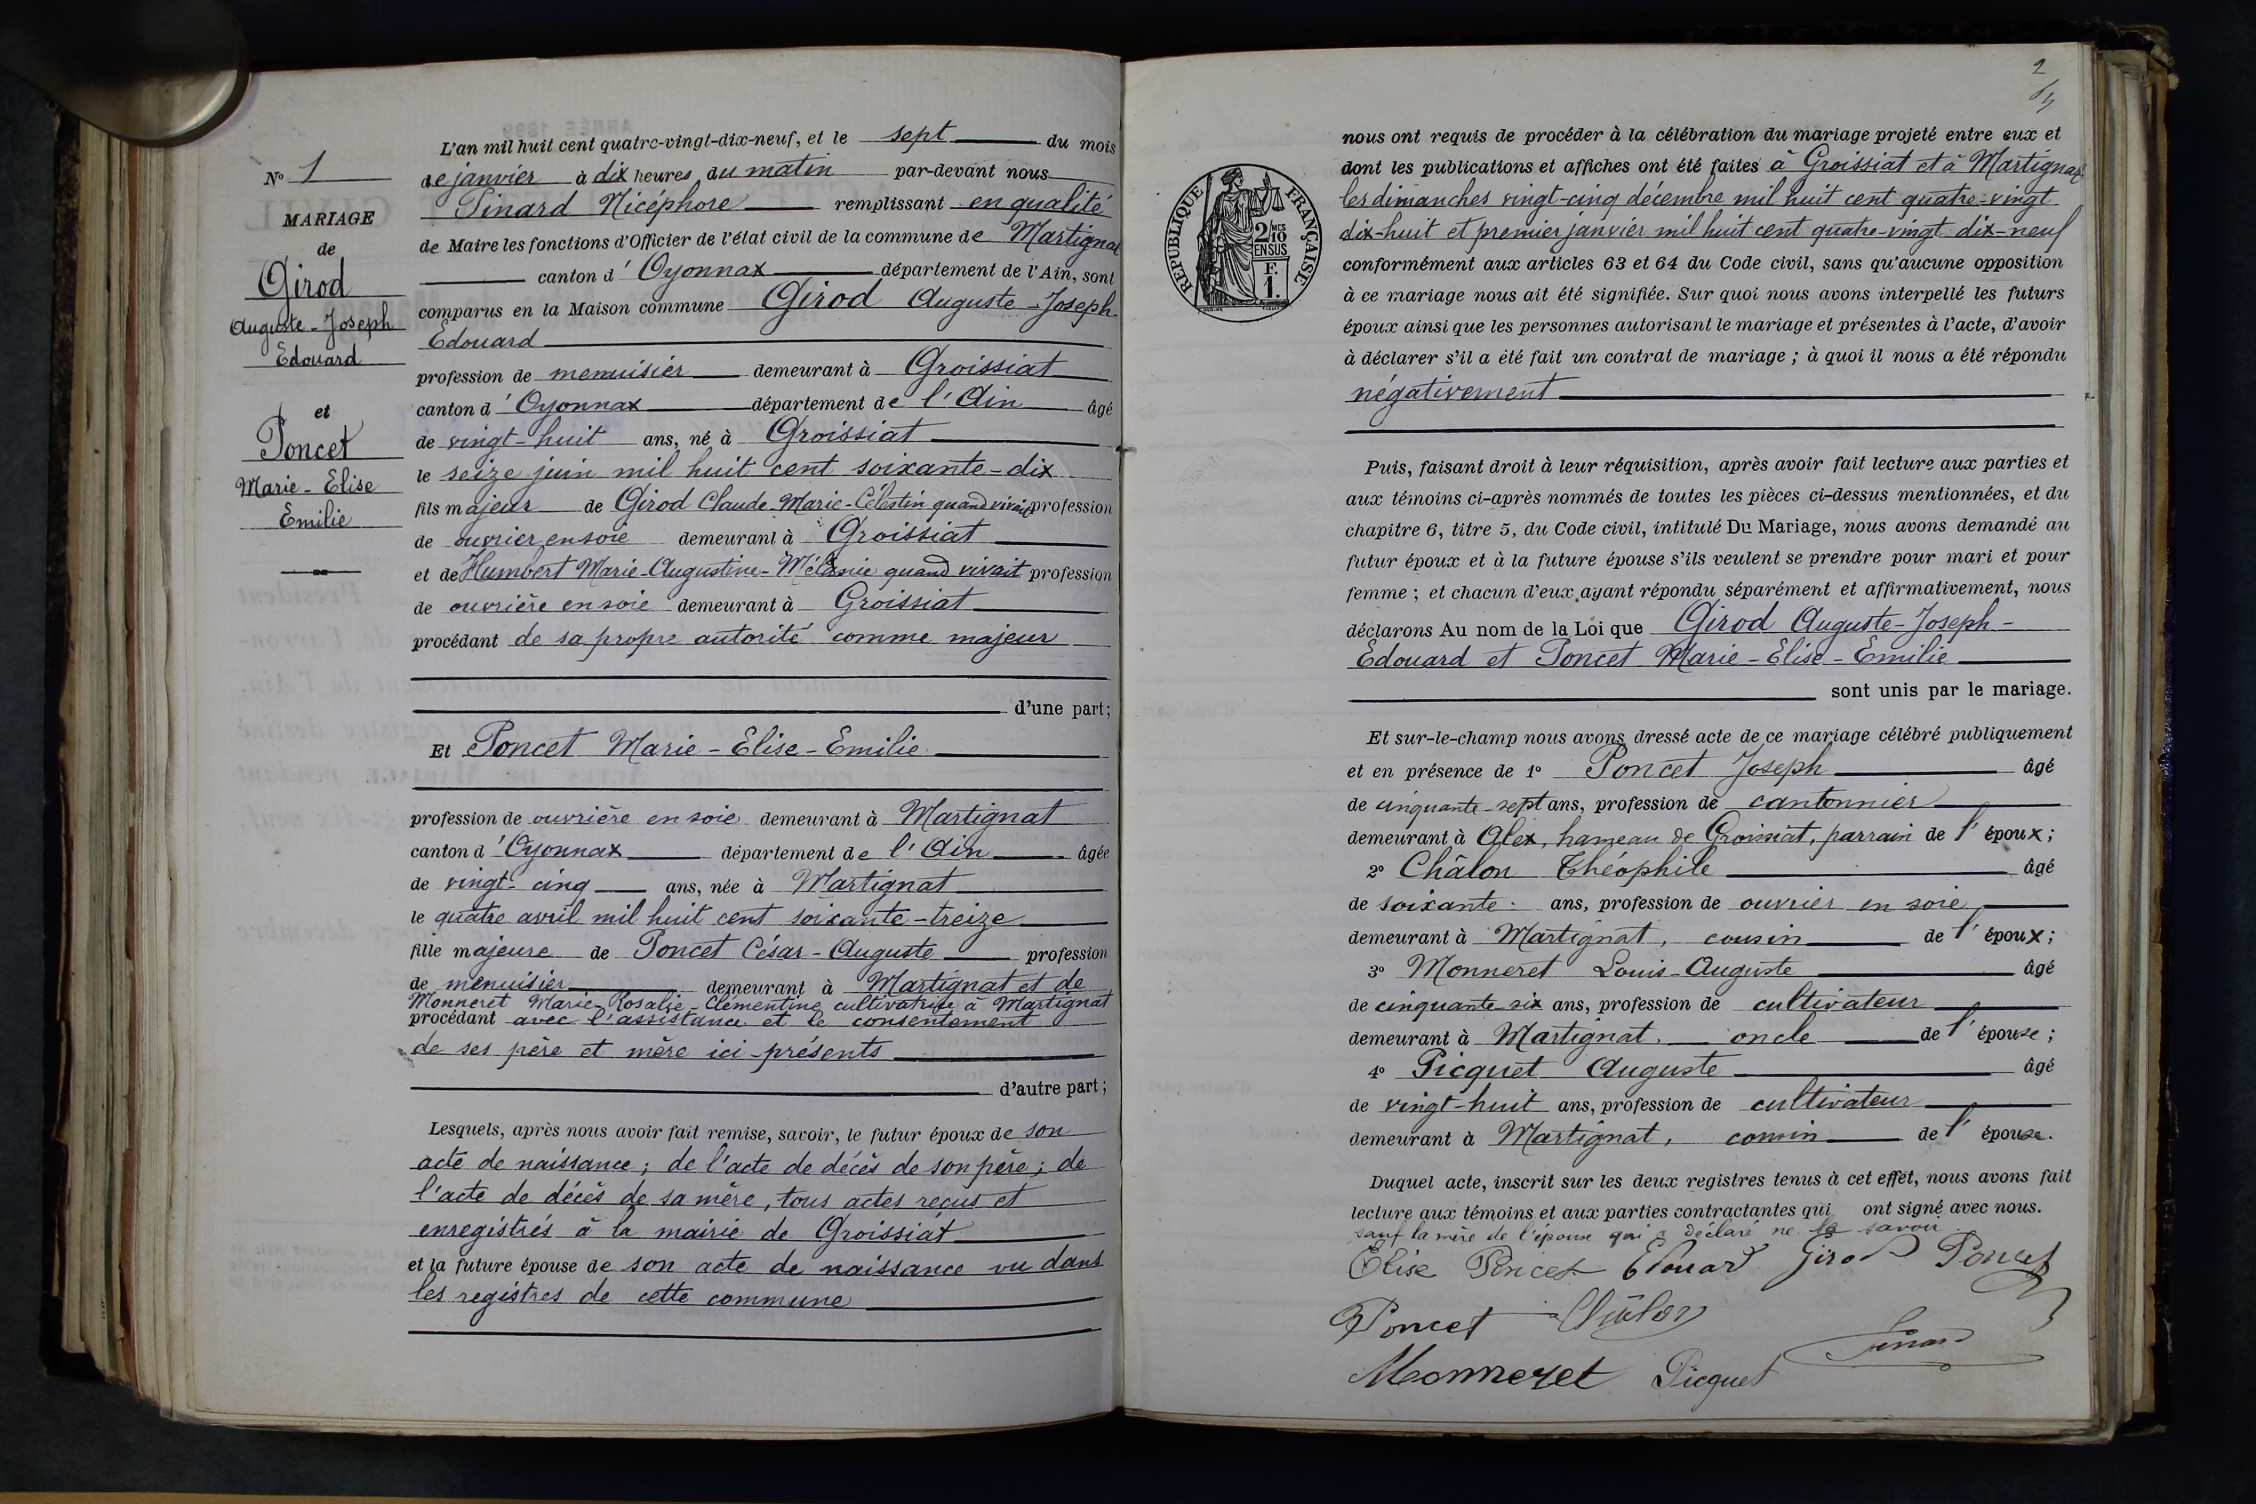 N° 1
MARIAGE
de
Girod
Auguste-Joseph
Edouard
et
Poncet
Marie-Elise
Emilie
L'an mil huit cent quatre-vingt-dix-neuf, et le sept du mois
de janvier à dix heures du matin par-devant nous
Pinard Nicéphore remplissant en qualité
de Maire les fonctions d'Officier de l'état civil de la commune de Martignat
canton d'Oyonnax département de l'Ain, sont
comparus en la Maison commune Girod Auguste-Joseph-
Edouard
profession de menuisier demeurant à Groissiat
canton d'Oyonnax département de l'Ain âgé
de vingt-huit ans, né à Groissiat
le seize juin mil huit cent soixante-dix
fils majeur de Girod Claude-Marie-Célestin quand vivait profession
de ouvrier en soie demeurant à Groissiat
et de Humbert Marie-Augustine-Mélanie quand vivait profession
de ouvrière en soie demeurant à Groissiat
procédant de sa propre autorité comme majeur
d'une part;
Et Poncet Marie-Elise-Emilie
profession de ouvrière en soie demeurant à Martignat
canton d'Oyonnax département de l'Ain âgée
de vingt-cinq ans, née à Martignat
le quatre avril mil huit cent soixante-treize
fille majeure de Poncet César-Auguste profession
de menuisier demeurant à Martignat et de
Monneret Marie-Rosalie-Clémentine cultivatrice à Martignat
procédant avec l'assistance et le consentement
de ses père et mère ici-présents
d'autre part;
Lesquels, après nous avoir fait remise, savoir, le futur époux de son
acte de naissance; de l'acte de décès de son père; de
l'acte de décès de sa mère, tous actes reçus et
enregistrés à la mairie de Groissiat
et la future épouse de son acte de naissance vu dans
les registres de cette commune
2
RÉPUBLIQUE FRANÇAISE
2 MES
10
EN SUS
F.
1.
nous ont requis de procéder à la célébration du mariage projeté entre eux et
dont les publications et affiches ont été faites à Groissiat et à Martignat
les dimanches vingt-cinq décembre mil huit cent quatre-vingt
dix-huit et premier janvier mil huit cent quatre-vingt dix-neuf
conformément aux articles 63 et 64 du Code civil, sans qu'aucune opposition
à ce mariage nous ait été signifiée. Sur quoi nous avons interpellé les futurs
époux ainsi que les personnes autorisant le mariage et présentes à l'acte, d'avoir
à déclarer s'il a été fait un contrat de mariage; à quoi il nous a été répondu
négativement
Puis, faisant droit à leur réquisition, après avoir fait lecture aux parties et
aux témoins ci-après nommés de toutes les pièces ci-dessus mentionnées, et du
chapitre 6, titre 5, du Code civil, intitulé Du Mariage, nous avons demandé au
futur époux et à la future épouse s'ils veulent se prendre pour mari et pour
femme; et chacun d'eux ayant répondu séparément et affirmativement, nous
déclarons Au nom de la Loi que Girod Auguste-Joseph-
Edouard et Poncet Marie-Elise-Emilie
sont unis par le mariage.
Et sur-le-champ nous avons dressé acte de ce mariage célébré publiquement
et en présence de 1° Poncet Joseph âgé
de cinquante-sept ans, profession de cantonnier
demeurant à Alex, hameau de Groissiat, parrain de l'époux;
2° Châlon Théophile âgé
de soixante ans, profession de ouvrier en soie
demeurant à Martignat, cousin de l'époux;
3° Monneret Louis-Auguste âgé
de cinquante-six ans, profession de cultivateur
demeurant à Martignat. oncle de l'épouse;
4° Picquet Auguste âgé
de vingt-huit ans, profession de cultivateur
demeurant à Martignat, cousin de l'épouse.
Duquel acte, inscrit sur les deux registres tenus à cet effet, nous avons fait
lecture aux témoins et aux parties contractantes qui ont signé avec nous.
sauf la mère de l'épouse qui a déclaré ne savoir.
Elise Poncet Edouard Girod Poncet
Poncet Châlon
Pinard
Monneret Picquet